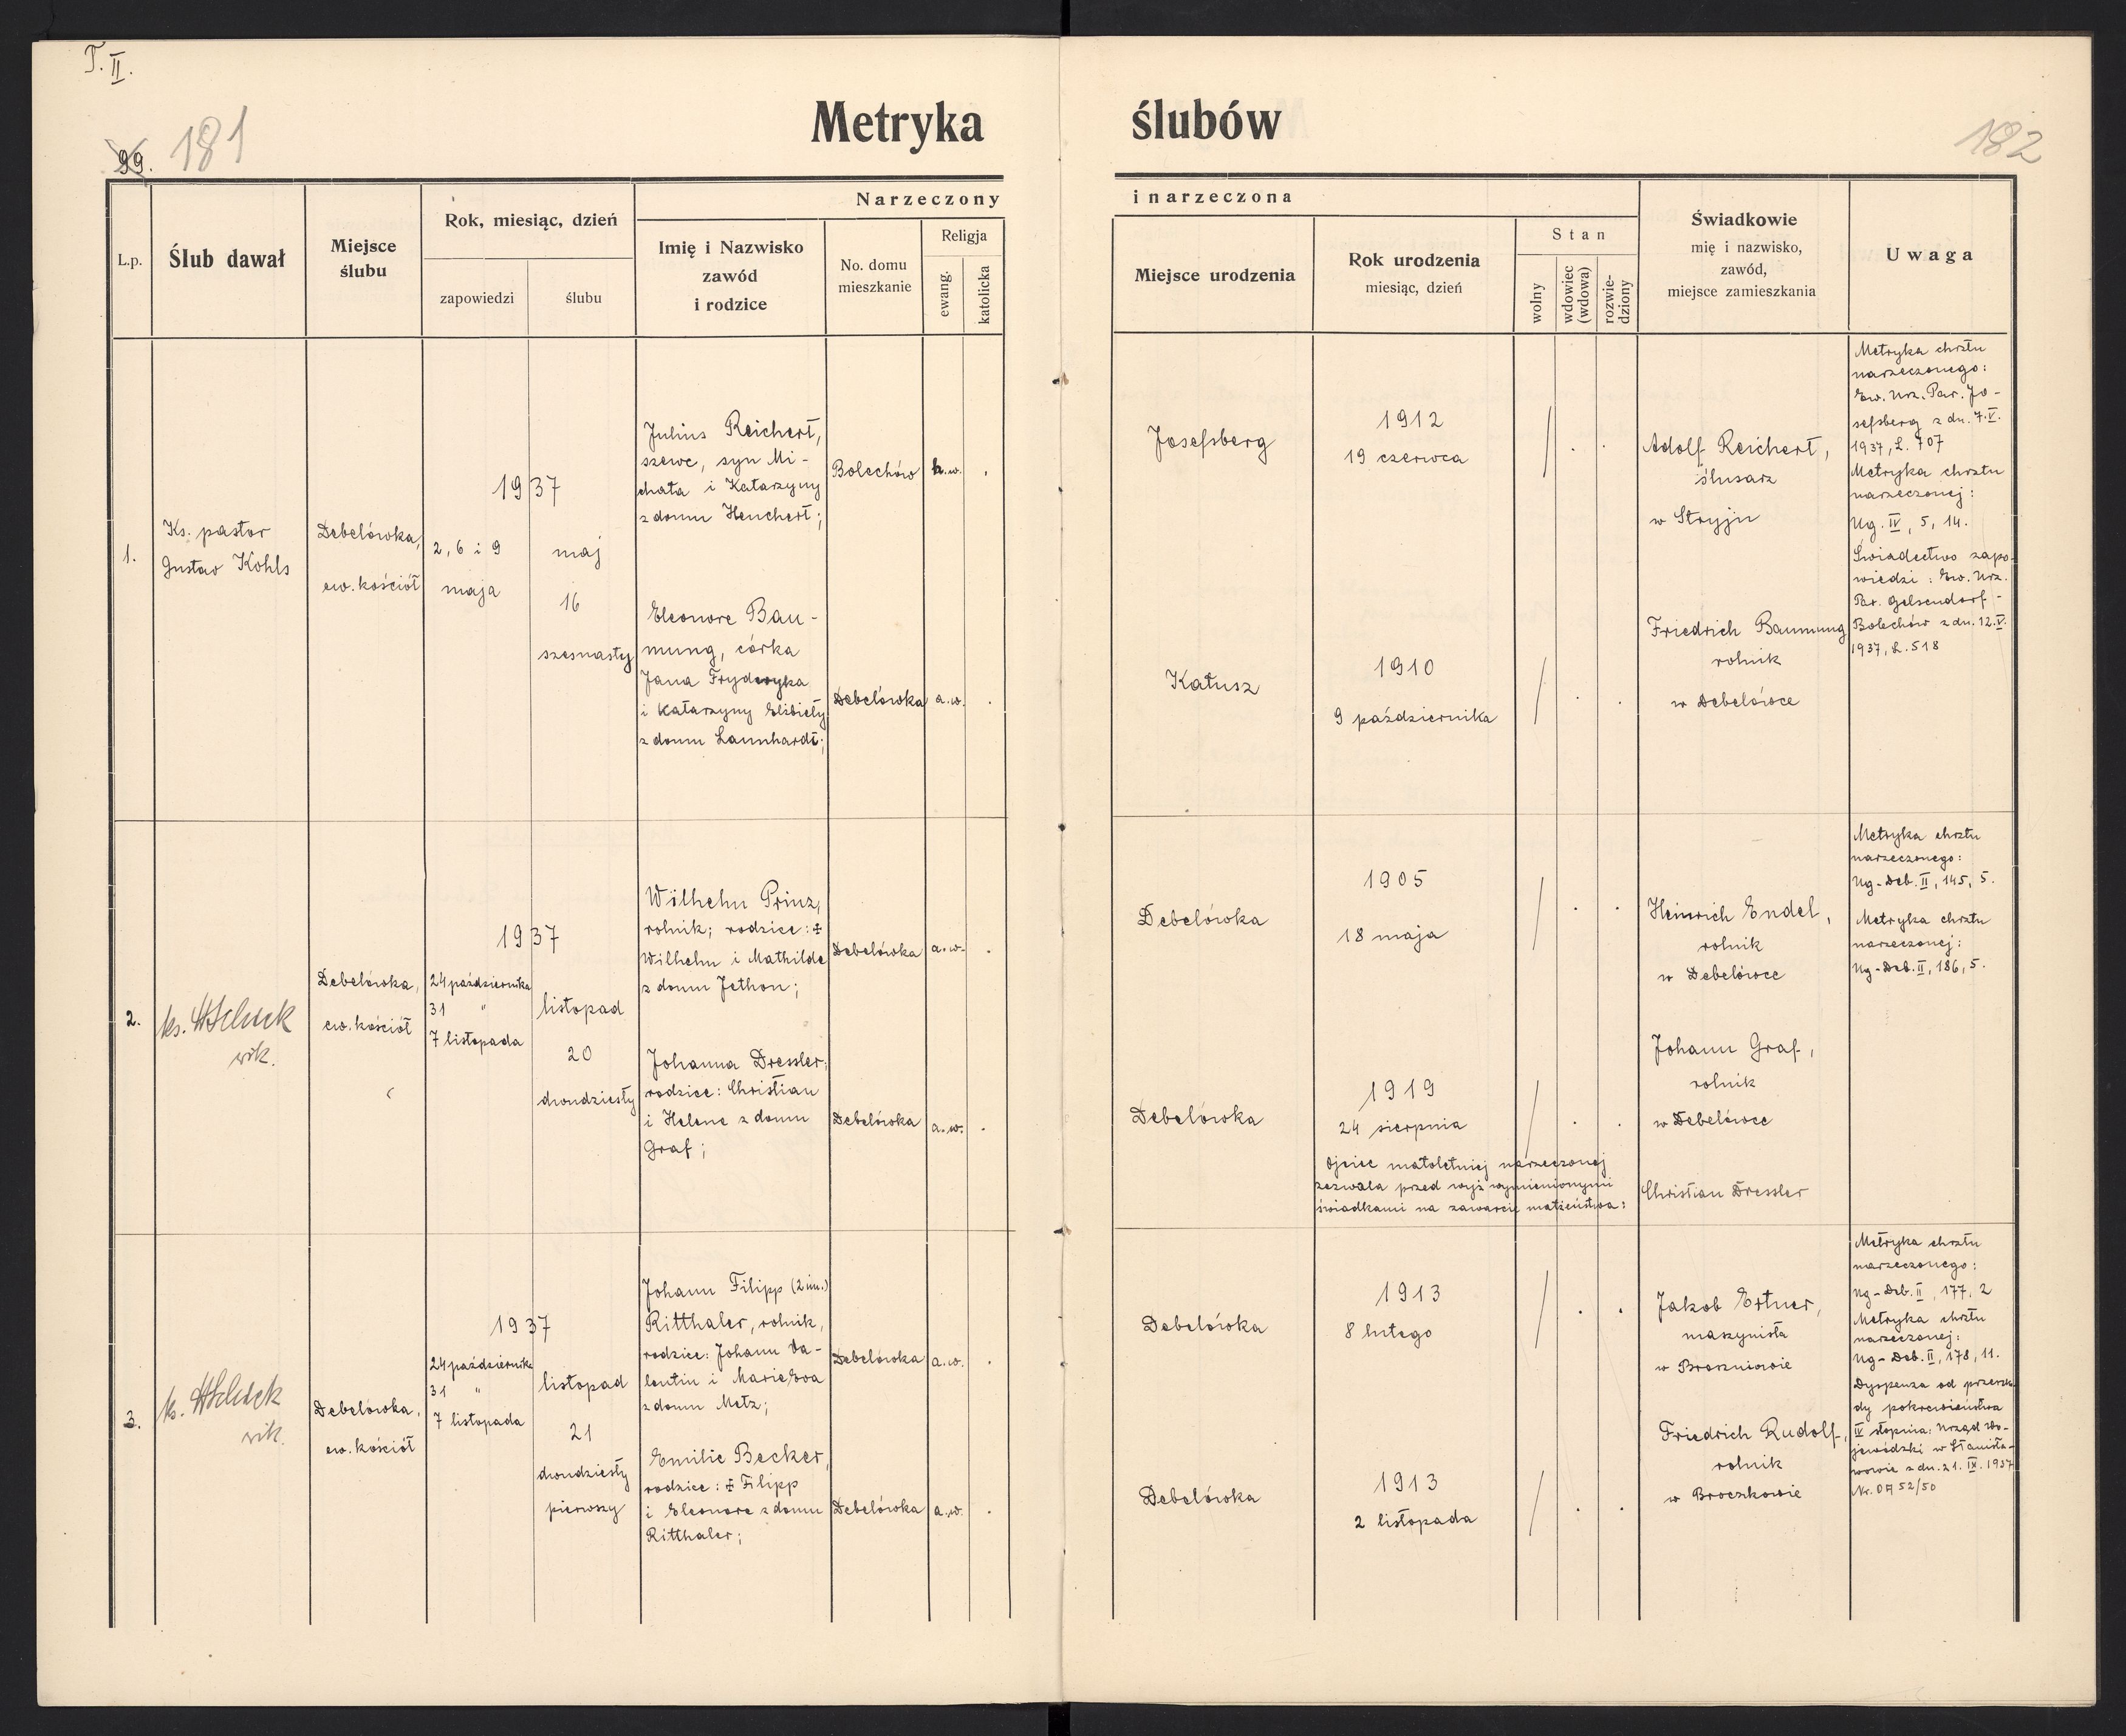 T. II.
99. 181
Metryka ślubów
182
Narzeczony i narzeczona
L.p.
Ślub dawał
Miejsce
ślubu
Rok, miesiąc, dzień
zapowiedzi
ślubu
Imię i Nazwisko
zawód
i rodzice
No. domu
mieszkanie
Religja
ewang.
katolicka
Miejsce urodzenia
Rok urodzenia
miesiąc, dzień
Stan
wolny
wdowiec
(wdowa)
rozwie-
dziony
Świadkowie
mię i nazwisko,
zawód,
miejsce zamieszkania
Uwaga
1.
Ks. pastor
Gustav Kohls
Debelówka,
ew. kościół
1937
2, 6 i 9
maja
maj
16
szesnasty
Julius Reichert,
szewc, syn Mi-
chała i Katarzyny
z domu Henchert;
Bolechów
h.w.
Eleonore Bau-
mung, córka
Jana Fryderyka
i Katarzyny Elżbiety
z domu Launhardt;
Debelówka
a.w.
Josefsberg
1912
19 czerwca
Katusz
1910
9 października
Adolf Reichert,
ślusarz
w Stryju
Friedrich Baumung
rolnik
w Debelówce
Metryka chrztu
narzeczonego:
Ew. Urz. Par. Jo-
sefsberg z dn. 7.V.
1937, L. 707
Metryka chrztu
narzeczonej:
Ug. IV, 5, 14.
Świadectwo zapo-
wiedzi: Ew. Urz.
Par. Gelsendorf-
Bolechów z dn. 12.V.
1937, L. 518
2.
ks.
wik.
Debelówka,
ew. kościół
1937
24 października
31 "
7 listopada
listopad
20
dwudziesty
Wilhelm Prinz,
rolnik; rodzice: ‡
Wilhelm i Mathilde
z domu Jethon;
Debelówka
a.w.
Johanna Dressler;
rodzice: Christian
i Helene z domu
Graf;
Debelówka
a.w.
Debelówka
1905
18 maja
Debelówka
1919
24 sierpnia
Ojciec małoletniej narzeczonej
zezwala przed wyż wymienionymi
świadkami na zawarcie małżeństwa:
Heinrich Endel,
rolnik
w Debelówce
Johann Graf,
rolnik
w Debelówce
Christian Dressler
Metryka chrztu
narzeczonego:
Ug-Deb. II, 145, 5.
Metryka chrztu
narzeczonej:
Ug-Deb. II, 186, 5.
3.
ks.
wik.
Debelówka,
ew. kościół
1937
24 października
31 "
7 listopada
listopad
21
dwudziesty
pierwszy
Johann Filipp (2 im.)
Ritthaler, rolnik,
rodzice: Johann Va-
lentin i Marie Eva
z domu Metz;
Debelówka
a.w.
Emilie Becker,
rodzice: ‡ Filipp
i Eleonore z domu
Ritthaler;
Debelówka
a.w.
Debelówka
1913
8 lutego
Debelówka
1913
2 listopada
Jakob Ertner,
maszynista
w Broszniowie
Friedrich Rudolf,
rolnik
w Broczkowie
Metryka chrztu
narzeczonego:
Ug-Deb. II, 177, 2
Metryka chrztu
narzeczonej:
Ug-Deb. II, 178, 11.
Dyspenza od przeszko-
dy pokrewieństwa
IV stopnia: Urząd Wo-
jewódzki w Stanisła-
wowie z dn. 21. IX. 1937
Nr. OA 52/50